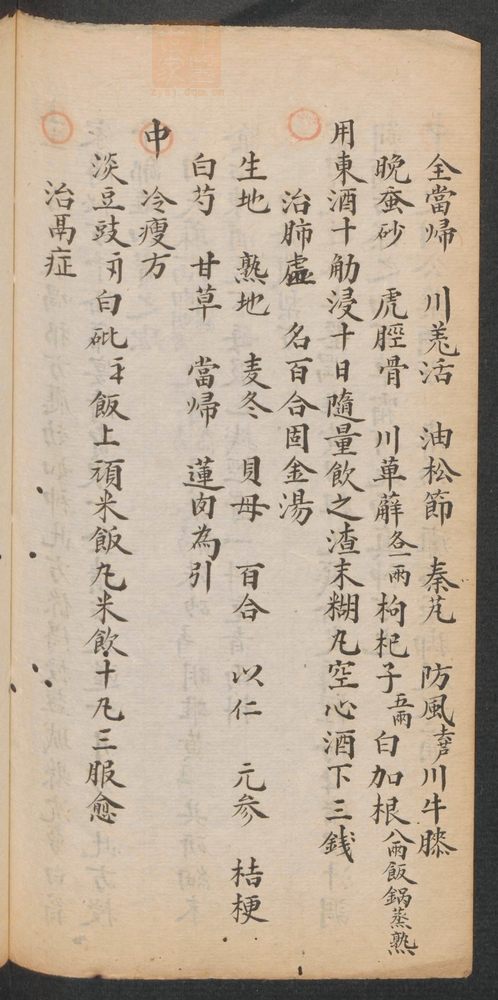 全當帰　川羗活　油松節　秦艽　防風去芦川牛膝
晚蚕砂　虎脛骨　川萆薢各一兩枸杞子五兩白加根八兩飯鍋蒸熟
用東酒十觔浸十日隨量飲之渣末糊丸空心酒下三銭
治肺虛　名百合固金湯
生地　熟地　麦冬　貝母　百合　以仁　元参　桔梗
白芍　甘草　當帰　蓮肉為引
中　冷瘦方
淡豆豉　白砒　飯上頓米飯丸米飲十丸三服愈
治鬲症